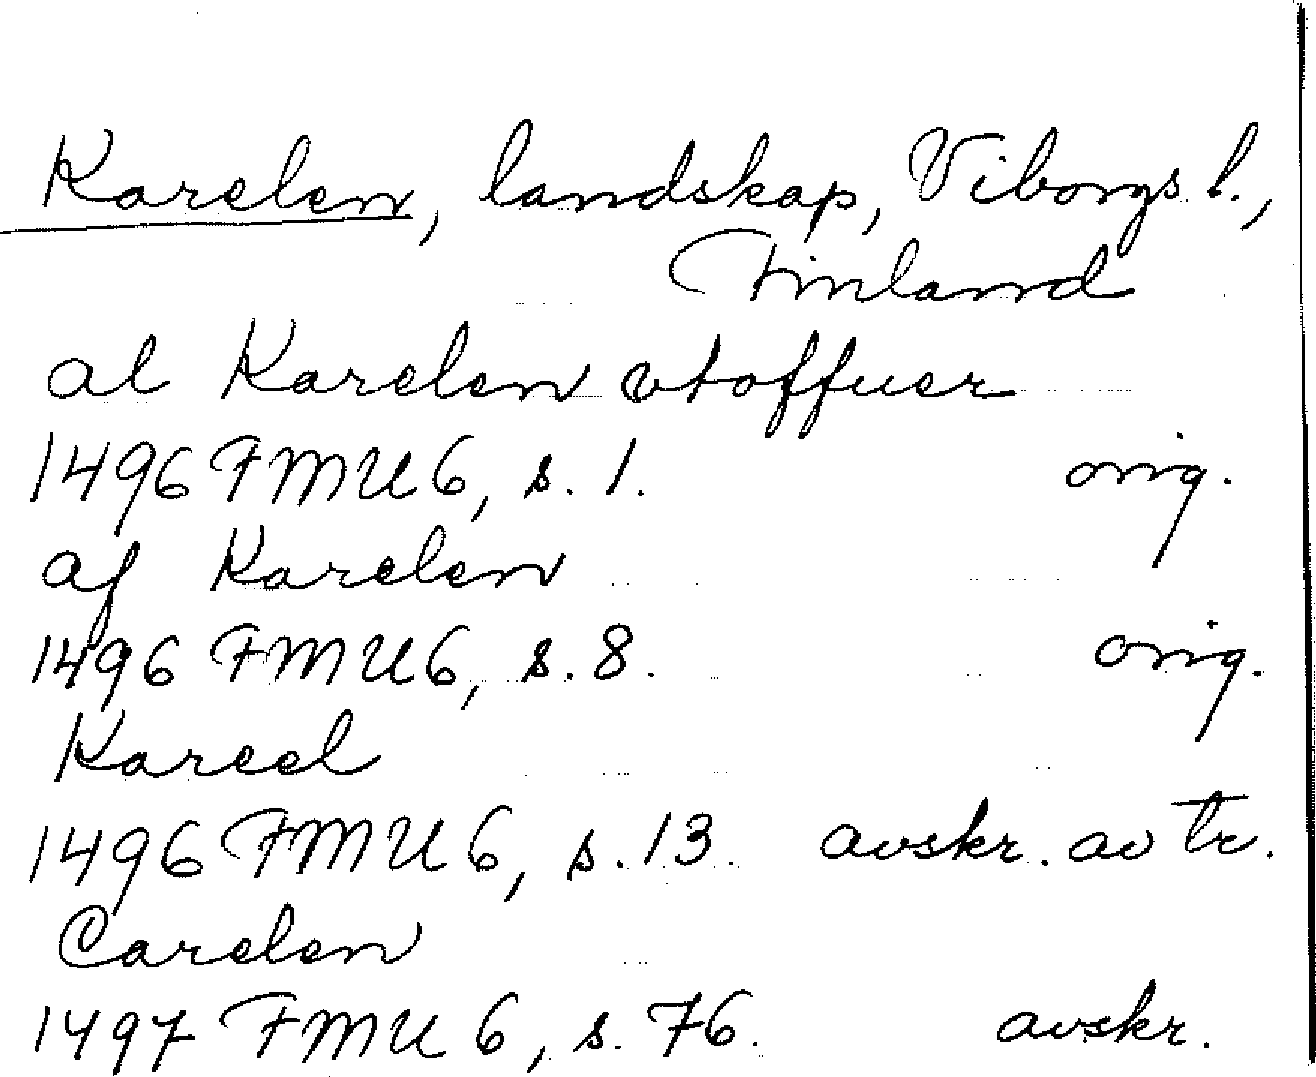 Karelen, landskap, Viborgs l.,
Finland
al Karelen vtoffuer
1496 FMU 6, s. 1. orig.
af Karelen
1496 FMU 6, s. 8. orig.
Kareel
1496 FMU 6, s. 13. avskr. av tr.
Carelen
1497 FMU 6, s. 76. avskr.